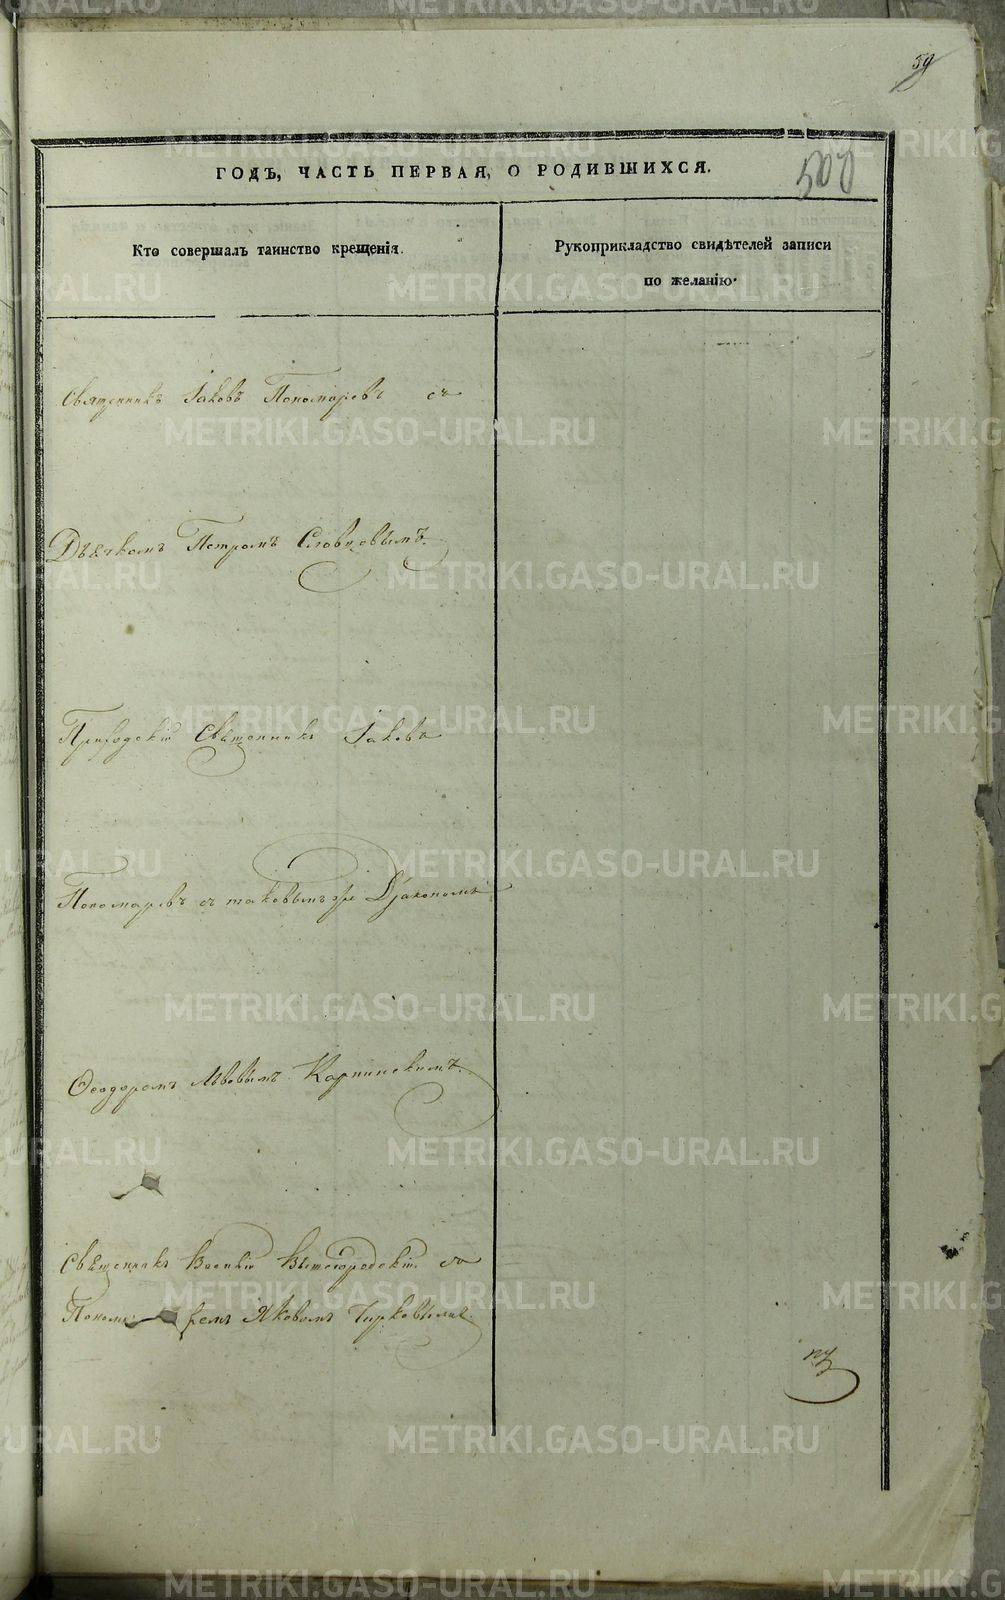 59
500
ГОДЪ, ЧАСТЬ ПЕРВАЯ, О РОДИВШИХСЯ.
Кто совершалъ таинство крещенія.
Рукоприкладство свидѣтелей записи
по желанію.
Священникъ Іаковъ Пономаревъ съ
Дьячкомъ Петромъ Словцовымъ.
Приходскій Священникъ Іаковъ
Пономаревъ съ таковымъ же Дьякономъ
Ѳеодоромъ Львовымъ Карпинскимъ.
Священникъ Василій Вышегородскій съ
Пономаремъ Яковомъ Чирковымъ.
METRIKI.GASO-URAL.RU